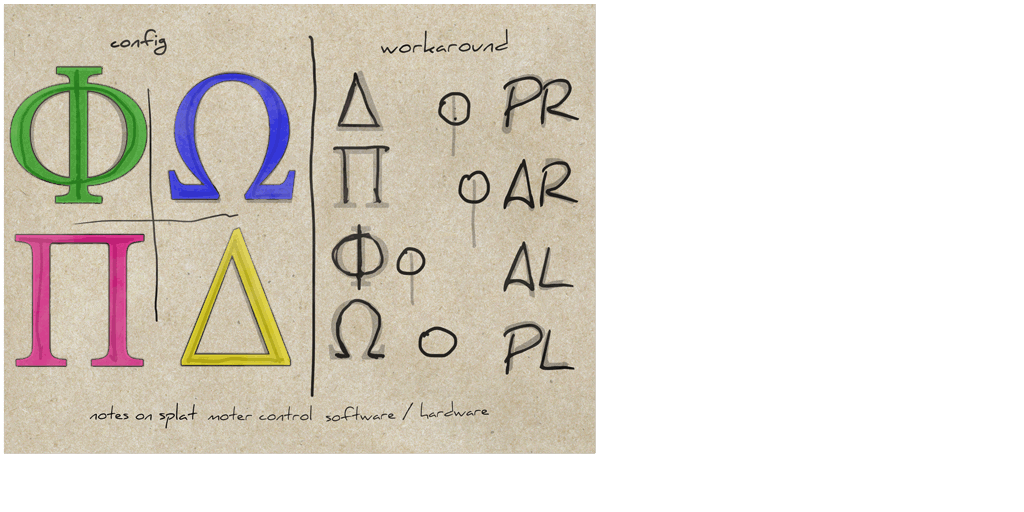 config
Φ Ω
Π Δ
workaround
Δ PR
Π AR
Φ AL
Ω PL
notes on splat moter control software / hardware